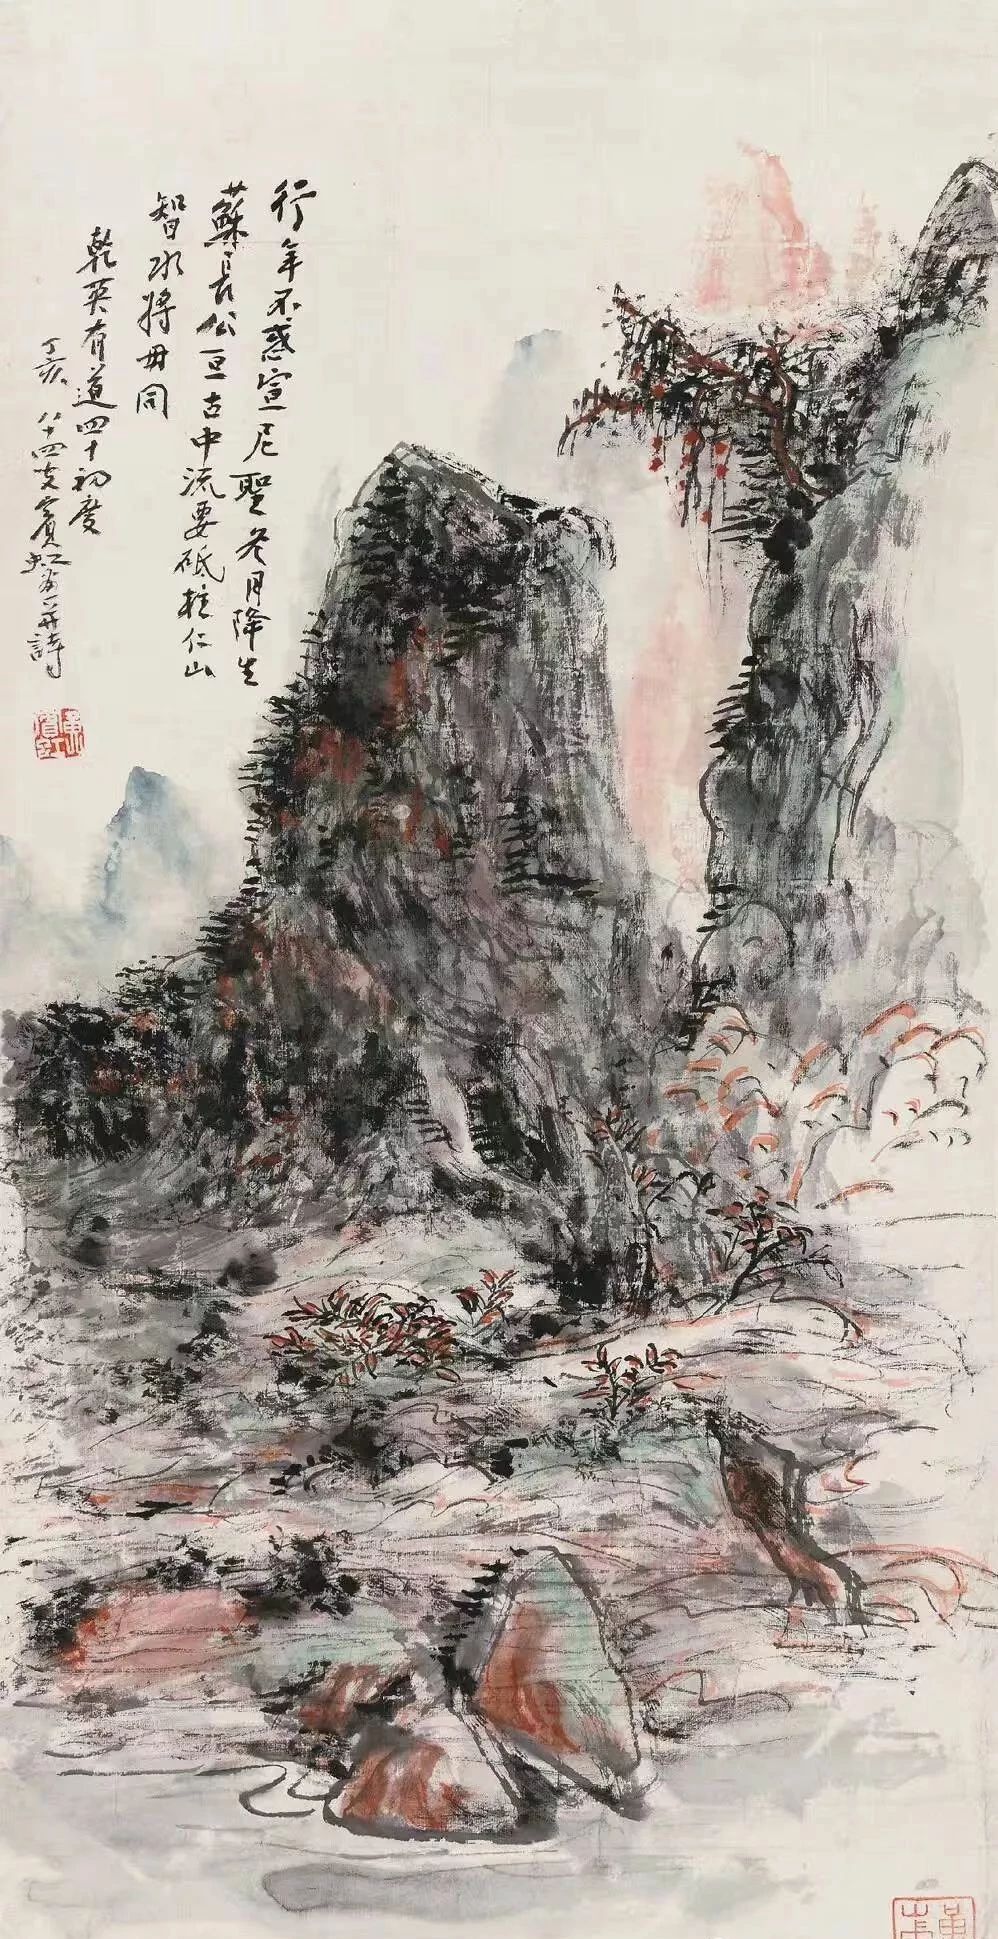 行年不惑宣尼聖冬月降生
蘇長公亘古中流要砥柱仁山
智水將毋同
乾英有道四十初度
丁亥八十四叟賓虹畫并詩
黃賓虹
黃